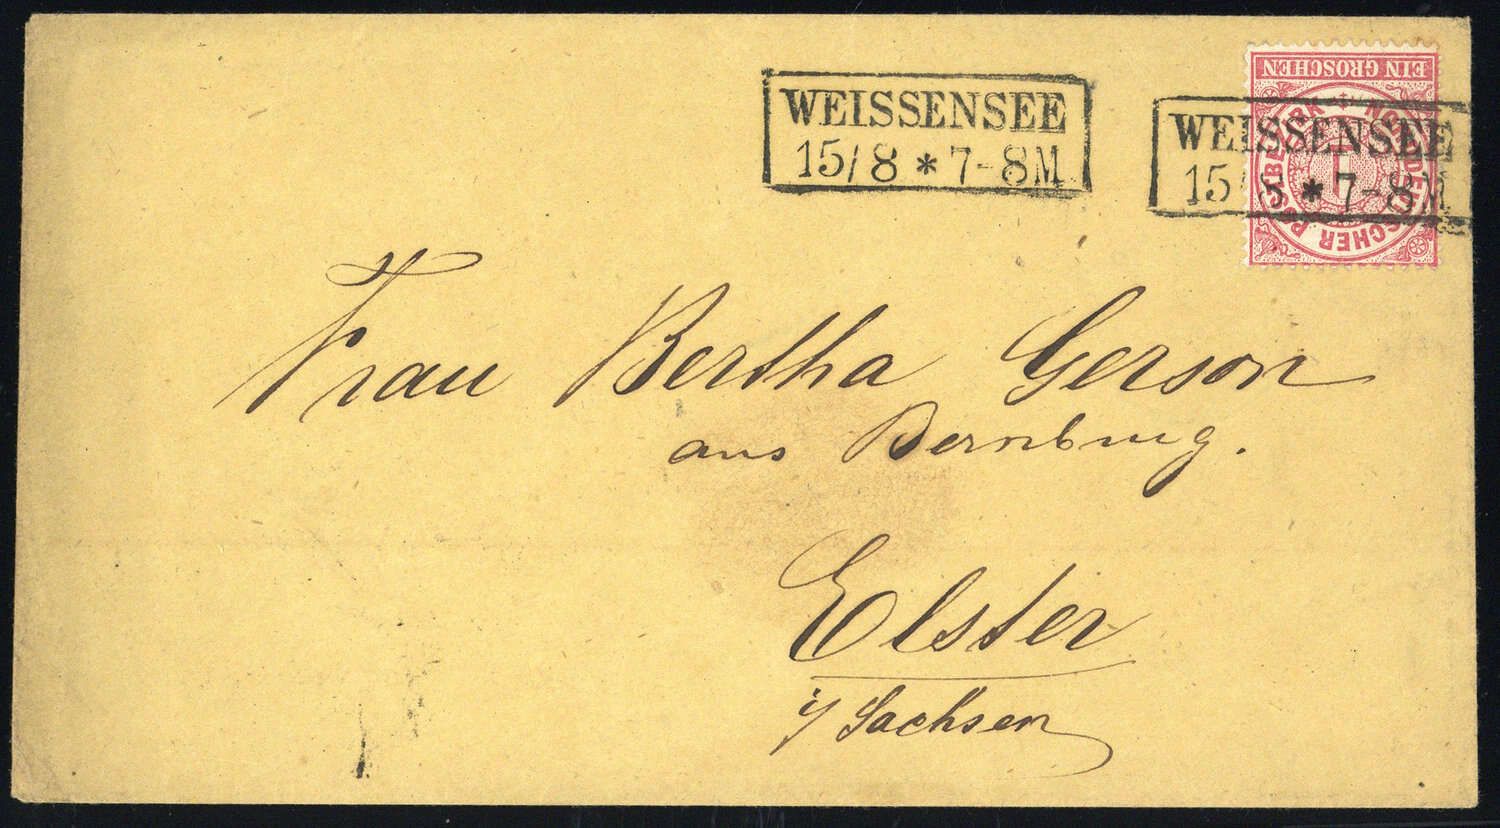 WEISSENSEE
15/8 * 7-8M
WEISSENSEE
15/8 * 7-8M
EIN GROSCHEN
NORDDEUTSCHER POSTBEZIRK
1
Frau Bertha Gerson
aus Bernburg.
Elster
i/ Sachsen